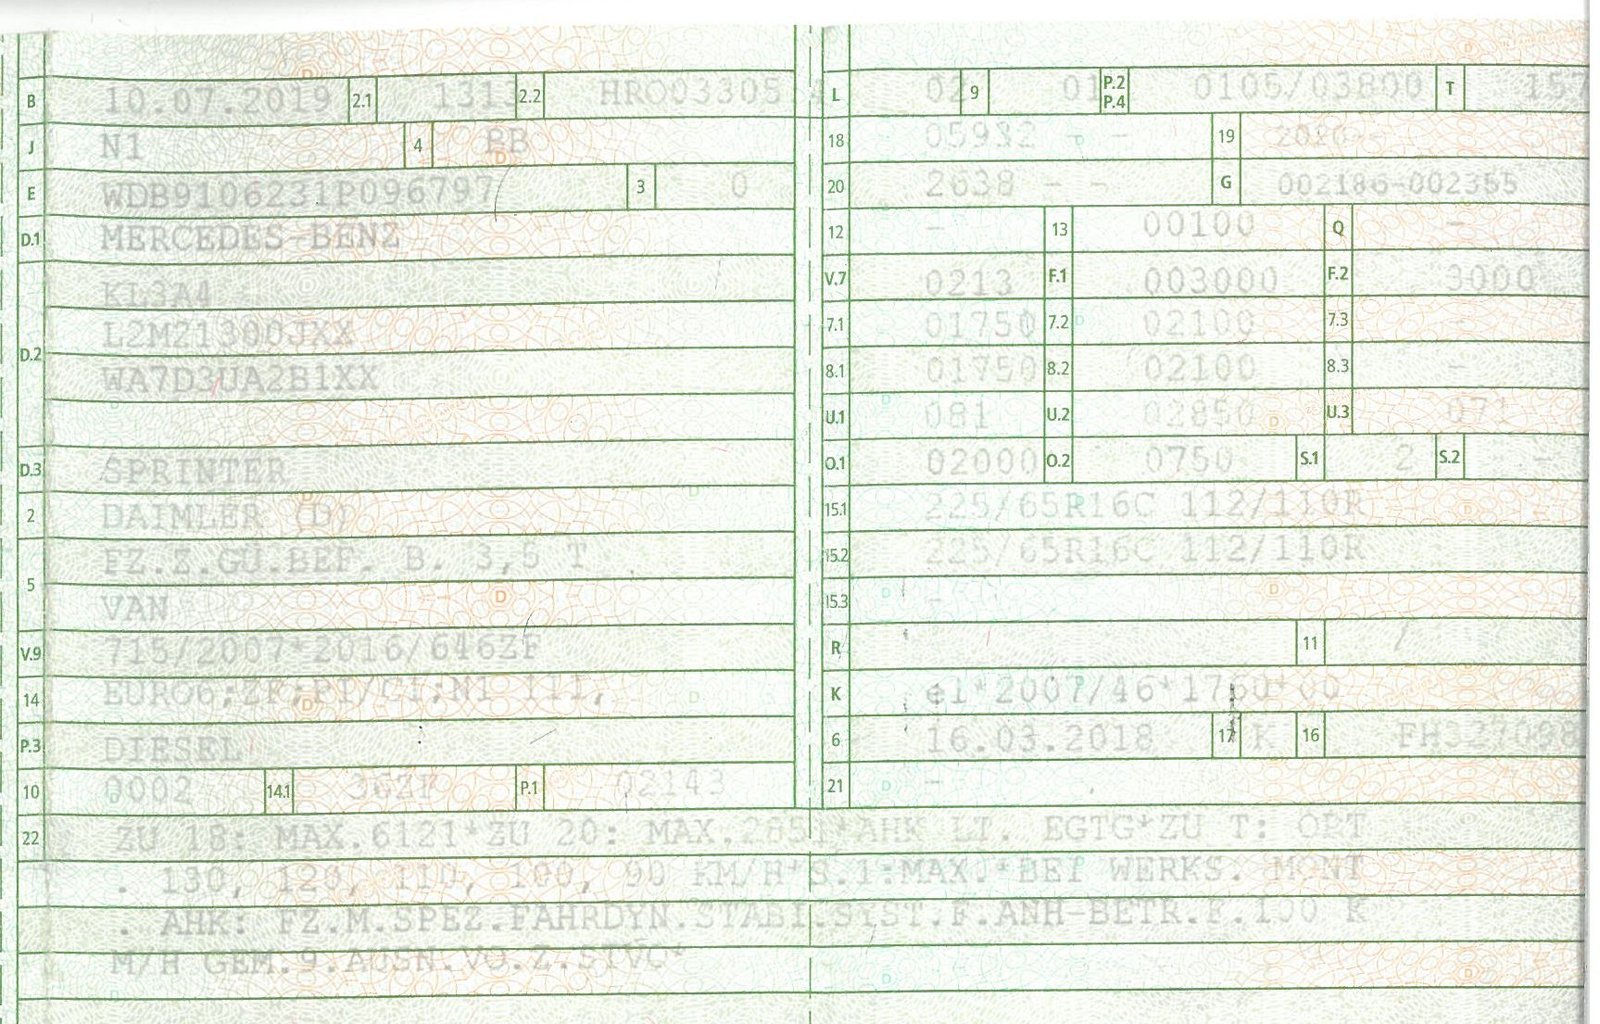 B 10.07.2019 2.1 1313 2.2 HRO03305 4
J N1 4 BB
E WDB9106231P096797 3 0
D.1 MERCEDES-BENZ
KL3A4
L2M21300JXX
D.2
WA7D3UA2B1XX
D.3 SPRINTER
2 DAIMLER (D)
FZ.Z.GÜ.BEF. B. 3,5 T
5
VAN
V.9 715/2007*2016/646ZF
14 EURO6;ZF;PI/CI;N1 III,
P.3 DIESEL
10 0002 14.1 36ZF P.1 02143
L 02 9 01 P.2 P.4 0105/03800 T 157
18 05932 - - 19 2020
20 2638 - - G 002186-002355
12 - 13 00100 Q -
V.7 0213 F.1 003000 F.2 3000
7.1 01750 7.2 02100 7.3
8.1 01750 8.2 02100 8.3 -
U.1 081 U.2 02850 U.3 071
O.1 02000 O.2 0750 S.1 2 S.2 -
15.1 225/65R16C 112/110R
15.2 225/65R16C 112/110R
15.3 -
R 11 /
K e1*2007/46*1760*00
6 16.03.2018 17 K 16 FH327098
21 -
22 ZU 18: MAX.6121*ZU 20: MAX.2851*AHK LT. EGTG*ZU T: OPT
. 130, 120, 110, 100, 90 KM/H*S.1:MAX.*BEI WERKS. MONT
. AHK: FZ.M.SPEZ.FAHRDYN.STABI.SYST.F.ANH-BETR.F.100 K
M/H GEM.9.AUSN.VO.Z.STVO*